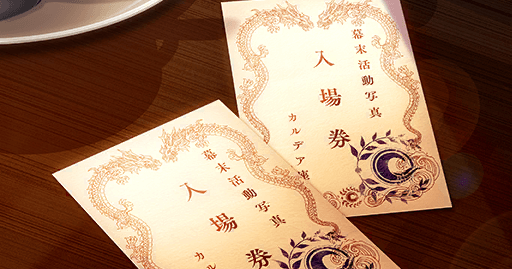 幕末活動写真
入場券
カルデア
幕末活動写真
入場券
カル